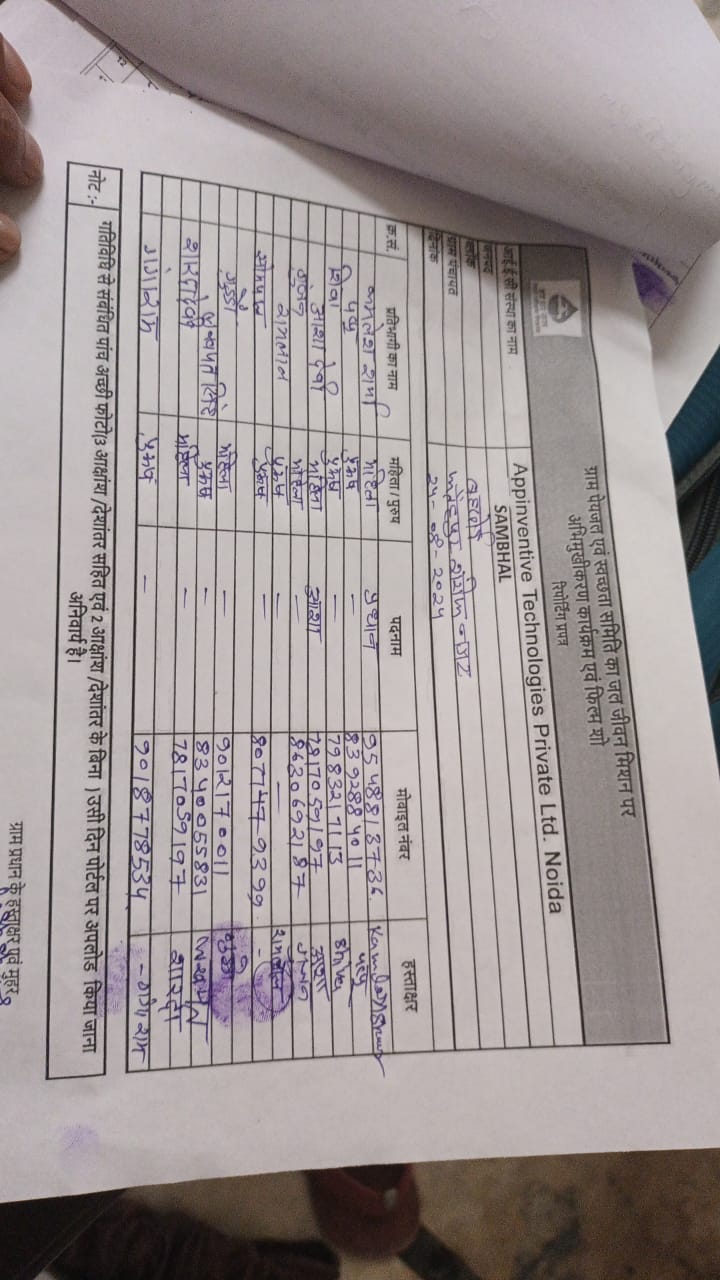 ग्राम पेयजल एवं स्वच्छता समिति का जल जीवन मिशन पर
अभिमुखीकरण कार्यक्रम एवं फिल्म शो
रिपोर्टिंग प्रपत्र
आई ई सी संस्था का नाम Appinventive Technologies Private Ltd. Noida
जनपद SAMBHAL
ग्राम पंचायत
दिनांक 24-08-2024
क्र.सं. प्रतिभागी का नाम महिला / पुरुष पदनाम मोबाइल नंबर हस्ताक्षर
कमलेश शर्मा महिला प्रधान 9548813736
पप्पू पुरुष — 8392884011 पप्पू
शिव पुरुष — 7983217113
आशा देवी महिला आशा 7817059197 आशा
गुंजन महिला — 8630692187 गुंजन
रामलाल पुरुष — —
ओमपाल पुरुष — 8077479399 -
गुड्डी महिला — 9012170011
पुरुष — 8340055831
शारदा देवी महिला — 7817059197 शारदा
गंगाराम पुरुष — 9018778534 - गंगाराम
नोट :- गतिविधि से संबंधित पांच अच्छी फोटो(3 आक्षांश /देशांतर सहित एवं 2 आक्षांश /देशांतर के बिना ) उसी दिन पोर्टल पर अपलोड किया जाना
अनिवार्य है।
ग्राम प्रधान के हस्ताक्षर एवं मुहर